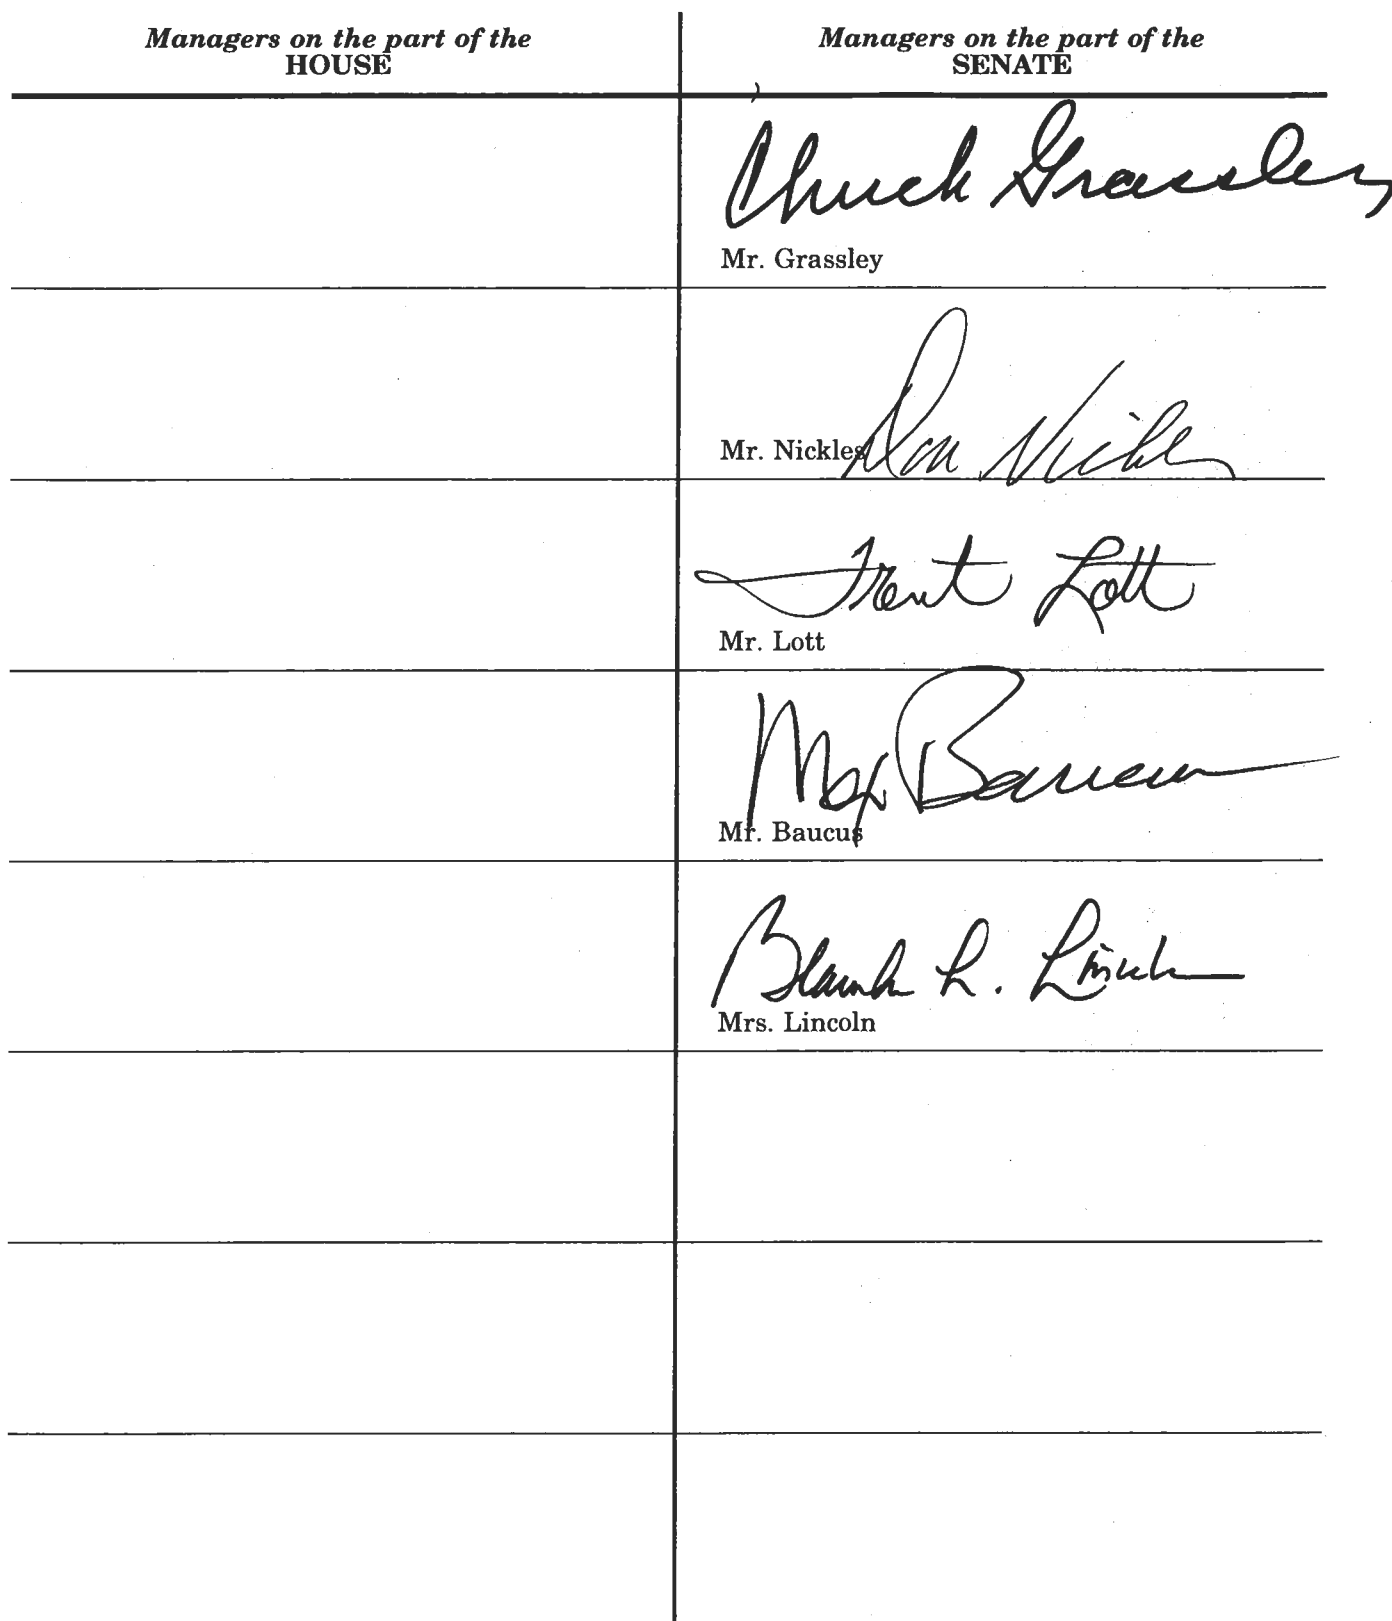 Managers on the part of the
HOUSE
Managers on the part of the
SENATE
Chuck Grassley
Mr. Grassley
Don Nickles
Mr. Nickles
Trent Lott
Mr. Lott
Max Baucus
Mr. Baucus
Blanche L. Lincoln
Mrs. Lincoln